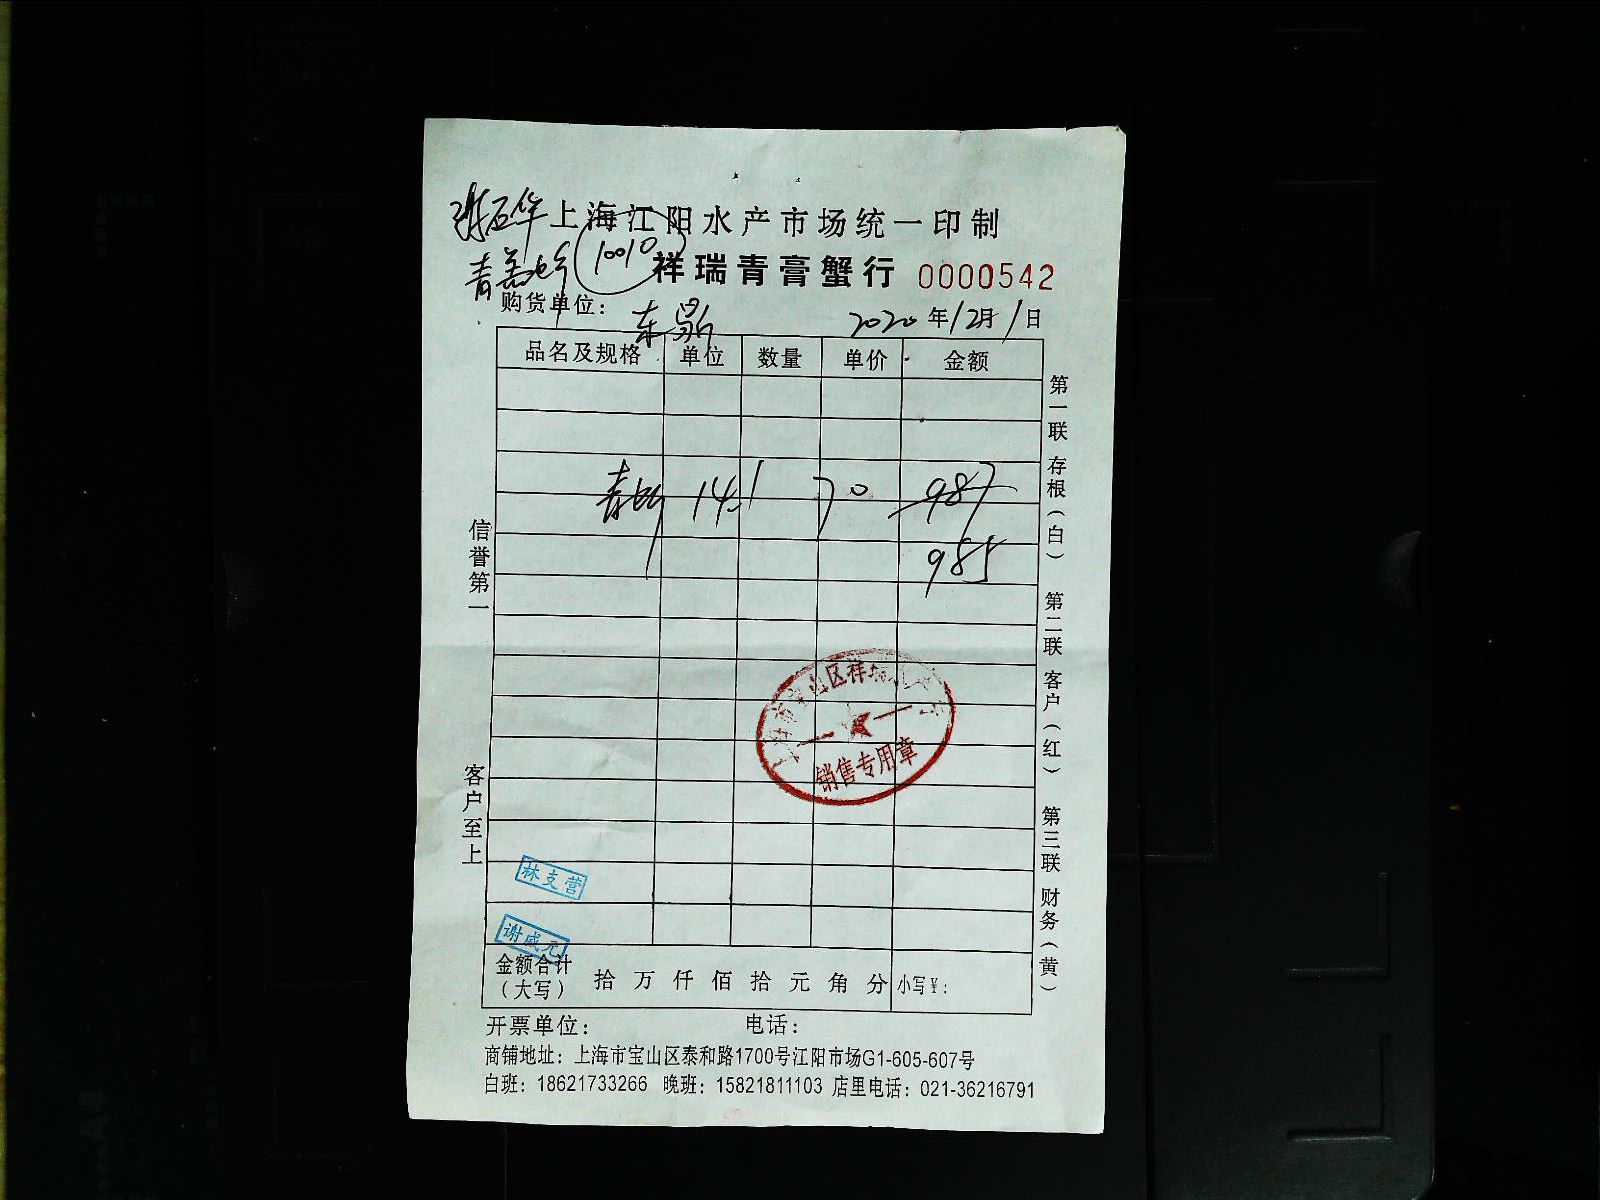 上海江阳水产市场统一印制
10010
祥瑞青膏蟹行 0000542
购货单位：东
2020年12月1日
品名及规格 单位 数量 单价 金额
青 14.1 70 987
985
信誉第一
客户至上
第一联 存根（白） 第二联 客户（红） 第三联 财务（黄）
宝山区祥
销售专用章
林支营
谢成元
金额合计（大写） 拾 万 仟 佰 拾 元 角 分 小写￥：
开票单位： 电话：
商铺地址：上海市宝山区泰和路1700号江阳市场G1-605-607号
白班：18621733266 晚班：15821811103 店里电话：021-36216791